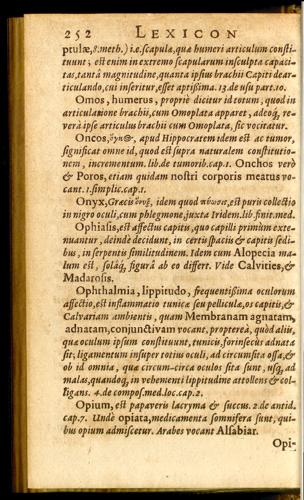 252 LEXICON
ptulæ, 8. meth.) i.e. scapulæ, quæ humeri articulum consti-
tuunt; est enim in extremo scapularum insculpta capaci-
tas, tantâ magnitudine, quanta ipsius brachii Capiti dearti-
culando, cui inseritur, esset aptissima. 13. de usu part. 10.
Omos, humerus, propriè dicitur id totum, quod in
articulatione brachii, cum Omoplata apparet, adeoq; re-
verâ ipse articulus brachii cum Omoplata, sic vocitatur.
Oncos, ὄγκ@, apud Hippocratem idem est ac tumor,
significat omne id, quod est supra naturalem constitutio-
nem, incrementum. lib. de tumorib. cap. 1. Onchos verò
& Poros, etiam quidam nostri corporis meatus vo-
cant. 1. simplic. cap. 1.
Onyx, Græcis ὄνυξ, idem quod πύωσις, est puris collectio
in nigro oculi, cum phlegmone, juxta Iridem. lib. finit. med.
Ophiasis, est affectus capitis, quo capilli primùm exte-
nuantur, deindè decidunt, in certis spaciis & capitis sedi-
bus, in serpentis similitudinem. Idem cum Alopecia ma-
lum est, solâq; figurâ ab eo differt. Vide Calvities, &
Madarosis.
Ophthalmia, lippitudo, frequentissima oculorum
affectio, est inflammatio tunicæ seu pelliculæ, os capitis, &
Calvariam ambientis, quam Membranam agnatam,
adnatam, conjunctivam vocant, proptereà, quòd aliis,
quæ oculum ipsum constituunt, tunicis, forinsecùs adnata
sit; ligamentum insuper totius oculi, ad circumsita ossa, &
ob id omnia, quæ circum-circa oculos sita sunt, usq; ad
malas, quandoq; in vehementi lippitudine attollens & col-
ligans. 4. de compos. med. loc. cap. 2.
Opium, est papaveris lacryma & succus. 2. de antid.
cap. 7. Unde opiata, medicamenta somnifera sunt, qui-
bus opium admiscetur. Arabes vocant Alsabiar.
Opi-